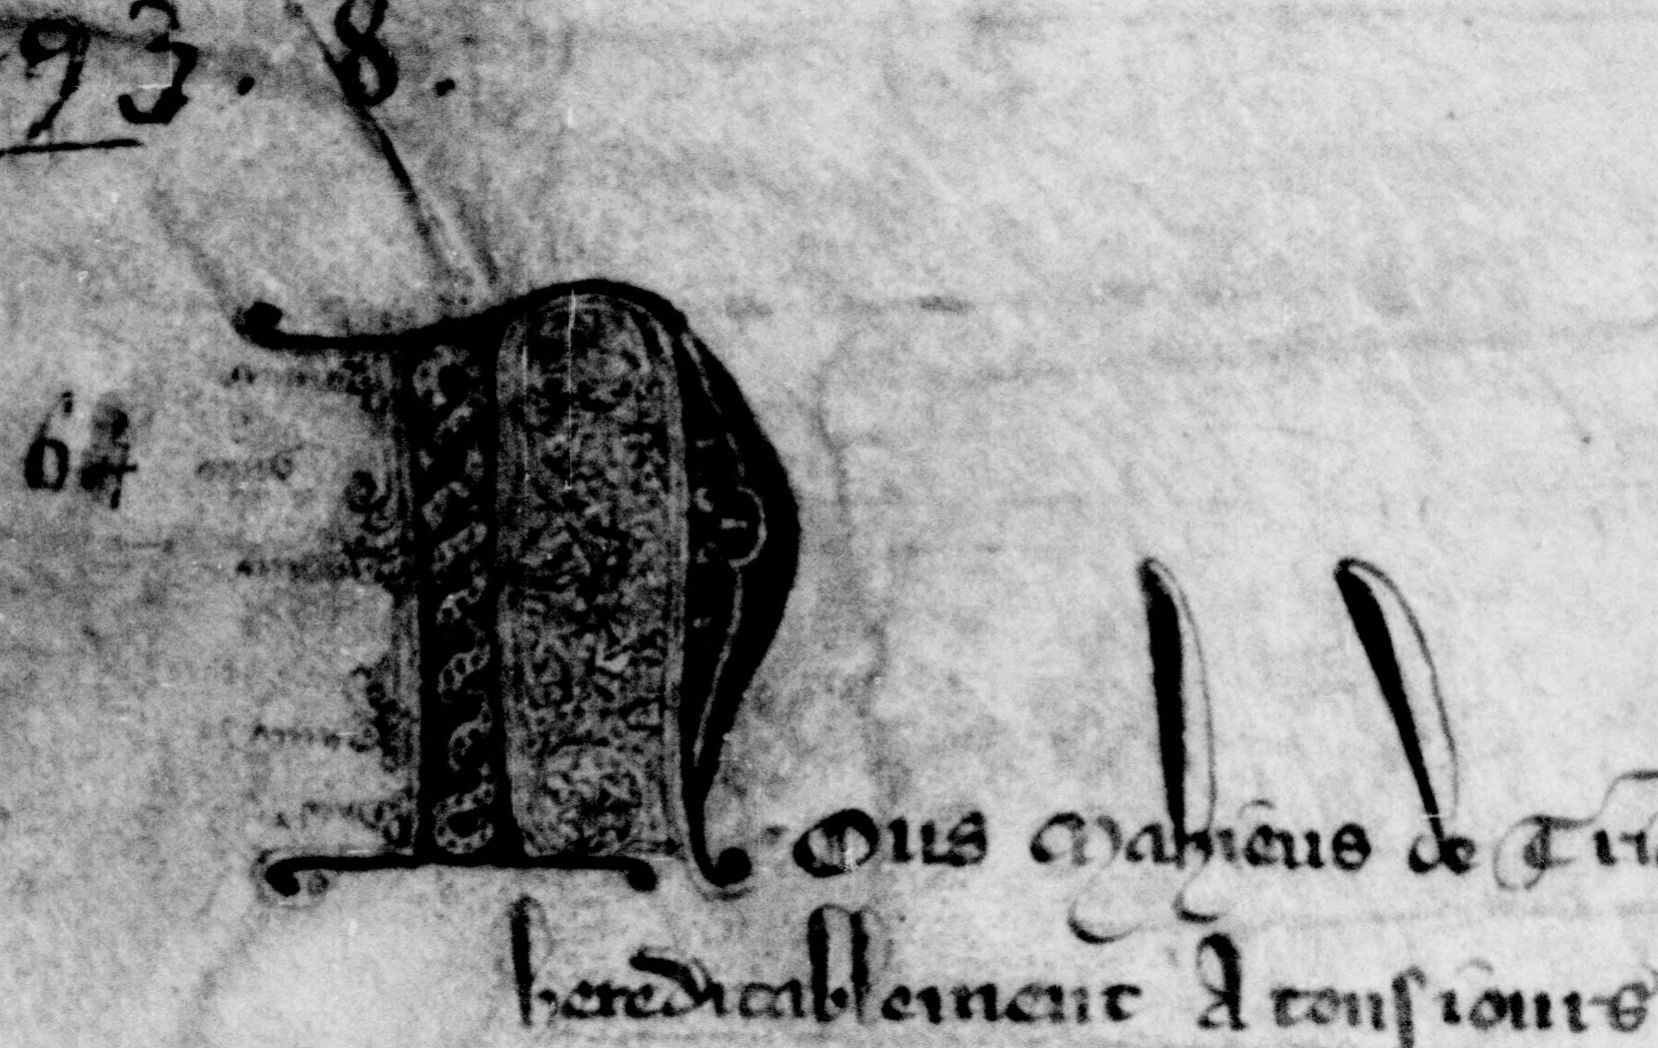 93. 8.
64
Nous Mahieus de Tri
hereditablement A tousiours